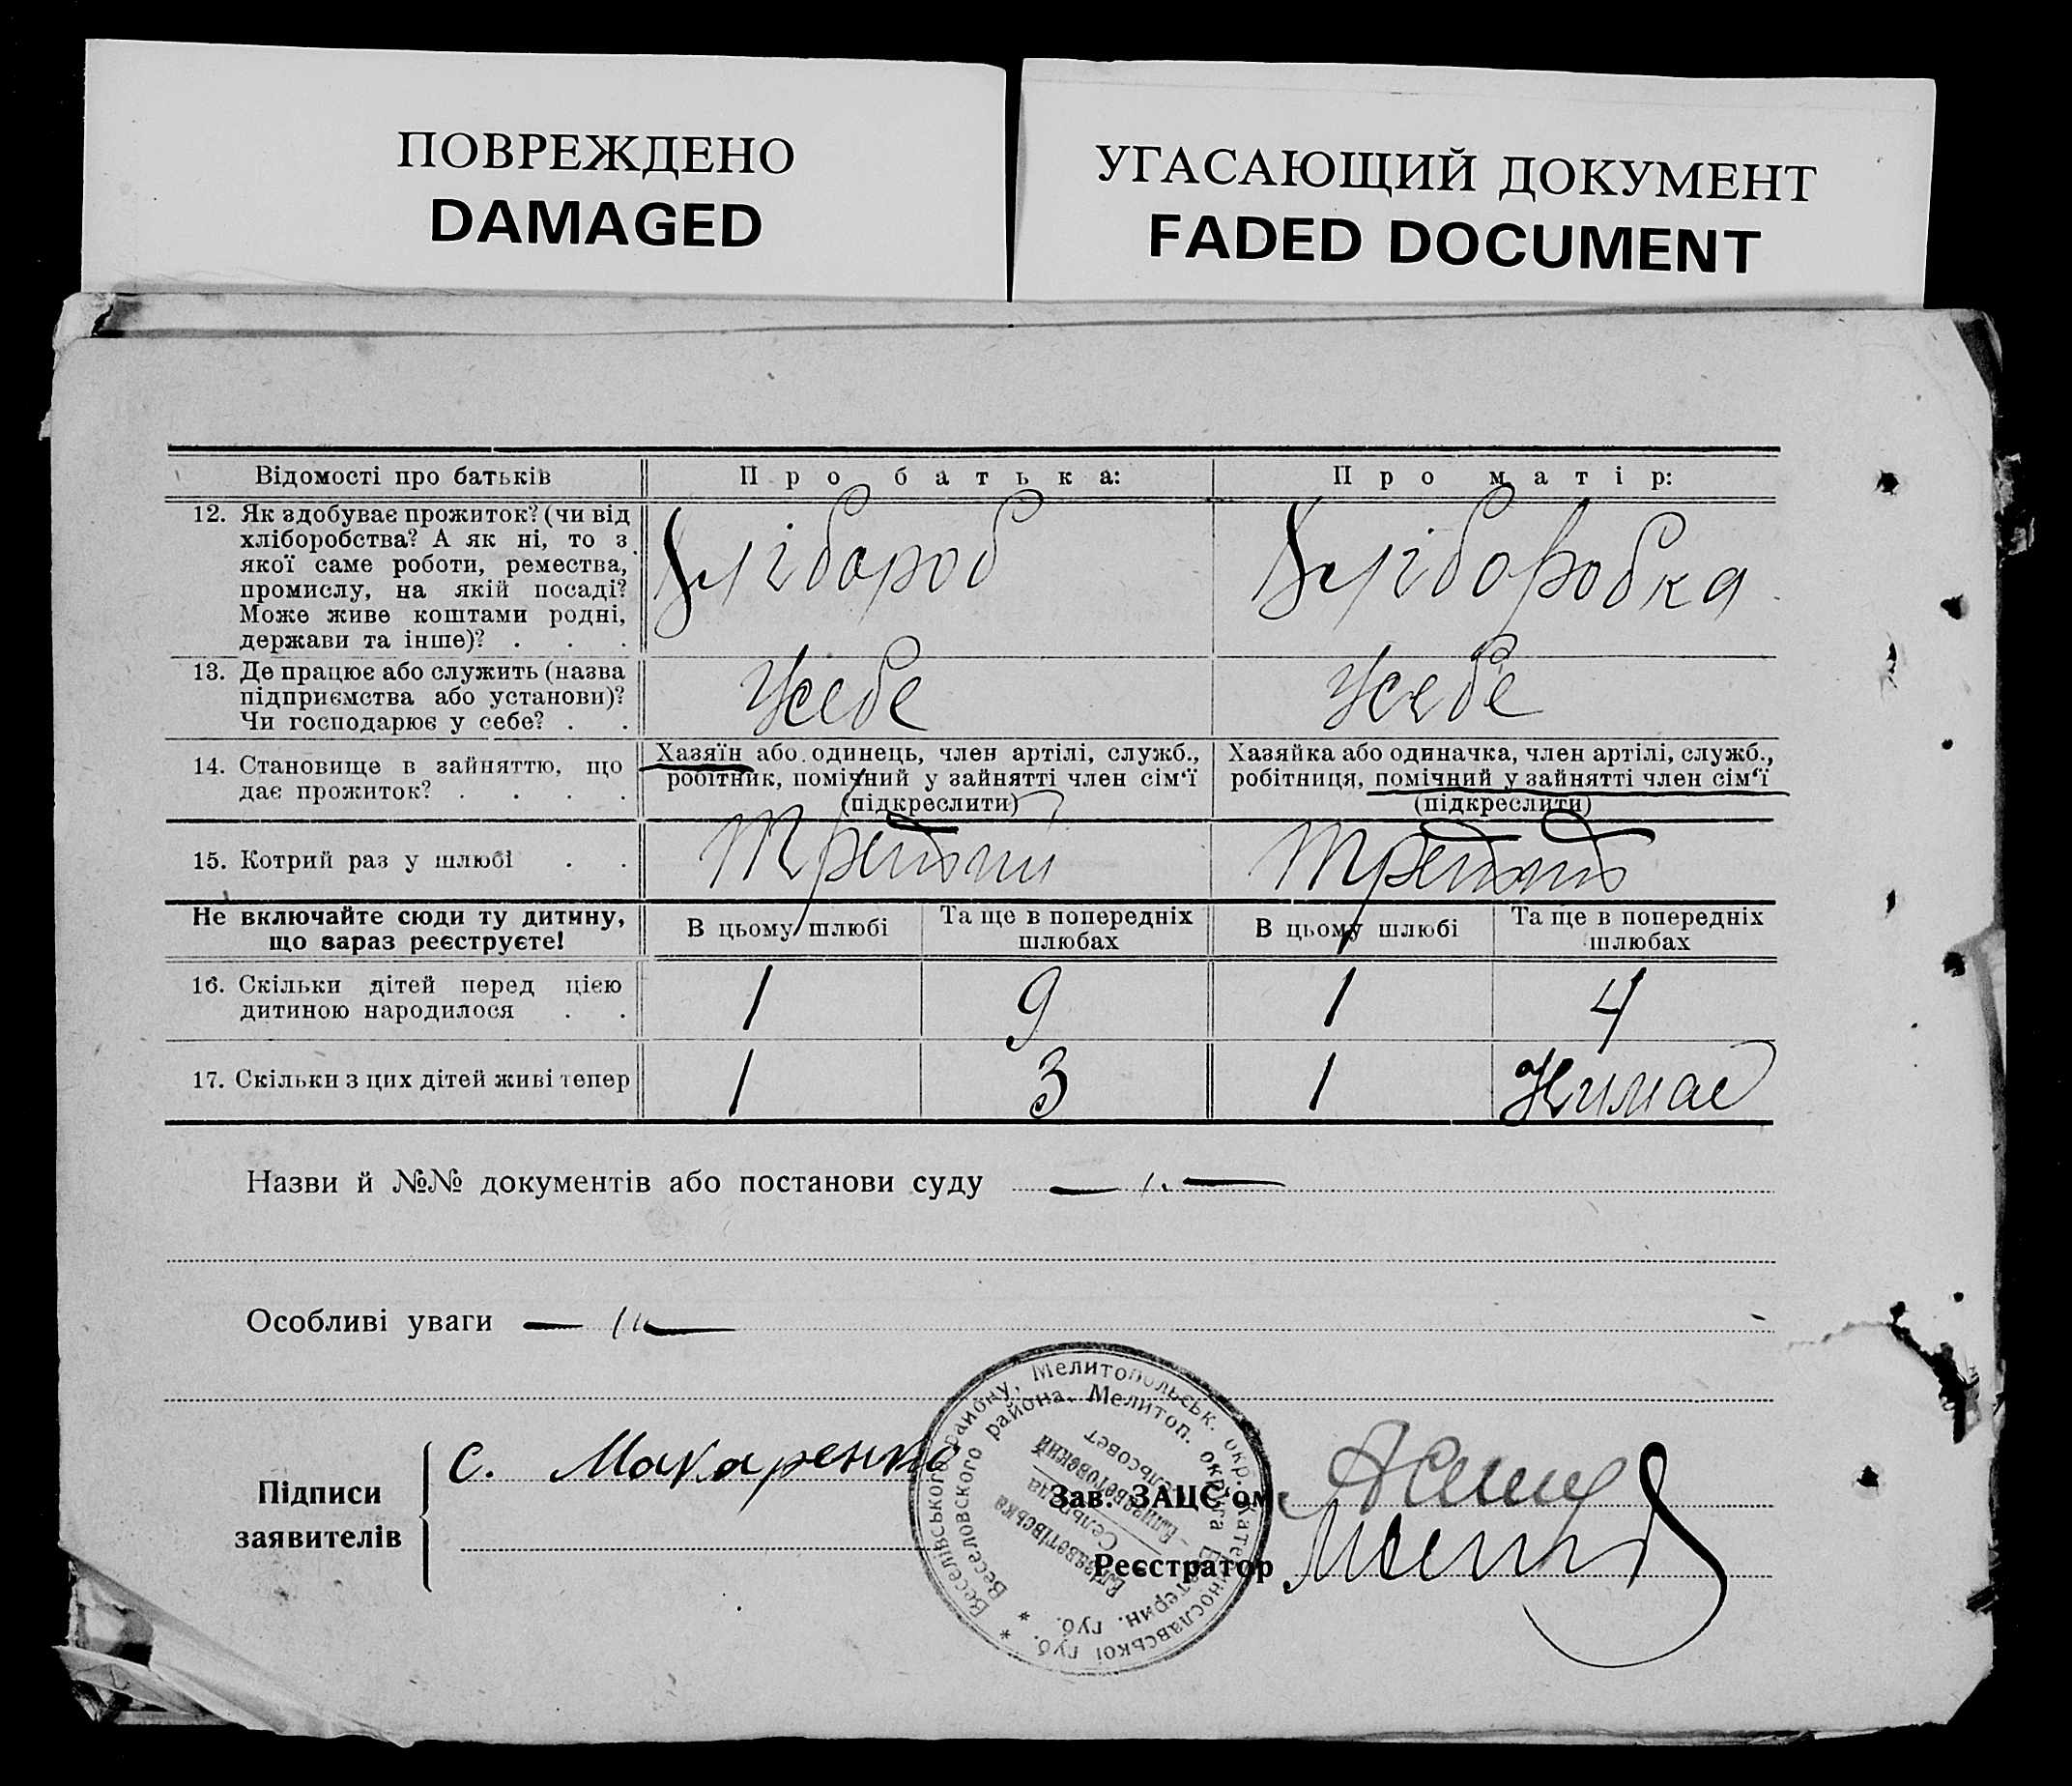 ПОВРЕЖДЕНО
DAMAGED
УГАСАЮЩИЙ ДОКУМЕНТ
FADED DOCUMENT
Відомості про батьків Про батька: Про матір:
12. Як здобуває прожиток? (чи від
хліборобства? А як ні, то з
якої саме роботи, ремества,
промислу, на якій посаді?
Може живе коштами родні,
держави та інше)? . . .
Хлібороб
Хліборобка
13. Де працює або служить (назва
підприємства або установи)?
Чи господарює у себе? . .
Усебе
Усебе
14. Становище в зайняттю, що
дає прожиток? . . . .
Хазяїн або одинець, член артілі, служб.,
робітник, помічний у зайнятті член сім'ї
(підкреслити)
Хазяйка або одиначка, член артілі, служб.,
робітниця, помічний у зайнятті член сім'ї
(підкреслити)
15. Котрий раз у шлюбі . .
Не включайте сюди ту дитину,
що зараз реєструєте!
В цьому шлюбі
Та ще в попередніх
шлюбах
В цьому шлюбі
Та ще в попередніх
шлюбах
16. Скільки дітей перед цією
дитиною народилося . .
1 9 1 4
17. Скільки з цих дітей живі тепер 1 3 1 Нимае
Назви й №№ документів або постанови суду
Особливі уваги
Підписи
заявителів
С. Макаренко
Зав. ЗАЦС'ом
Реєстратор
* Веселівського району, Мелитопольськ. окр. Катеринославської губ.
* Веселовского района, Мелитоп. округа Екатерин. губ.
Елізаветівська
Сельрада
Елизаветовский
Сельсовет